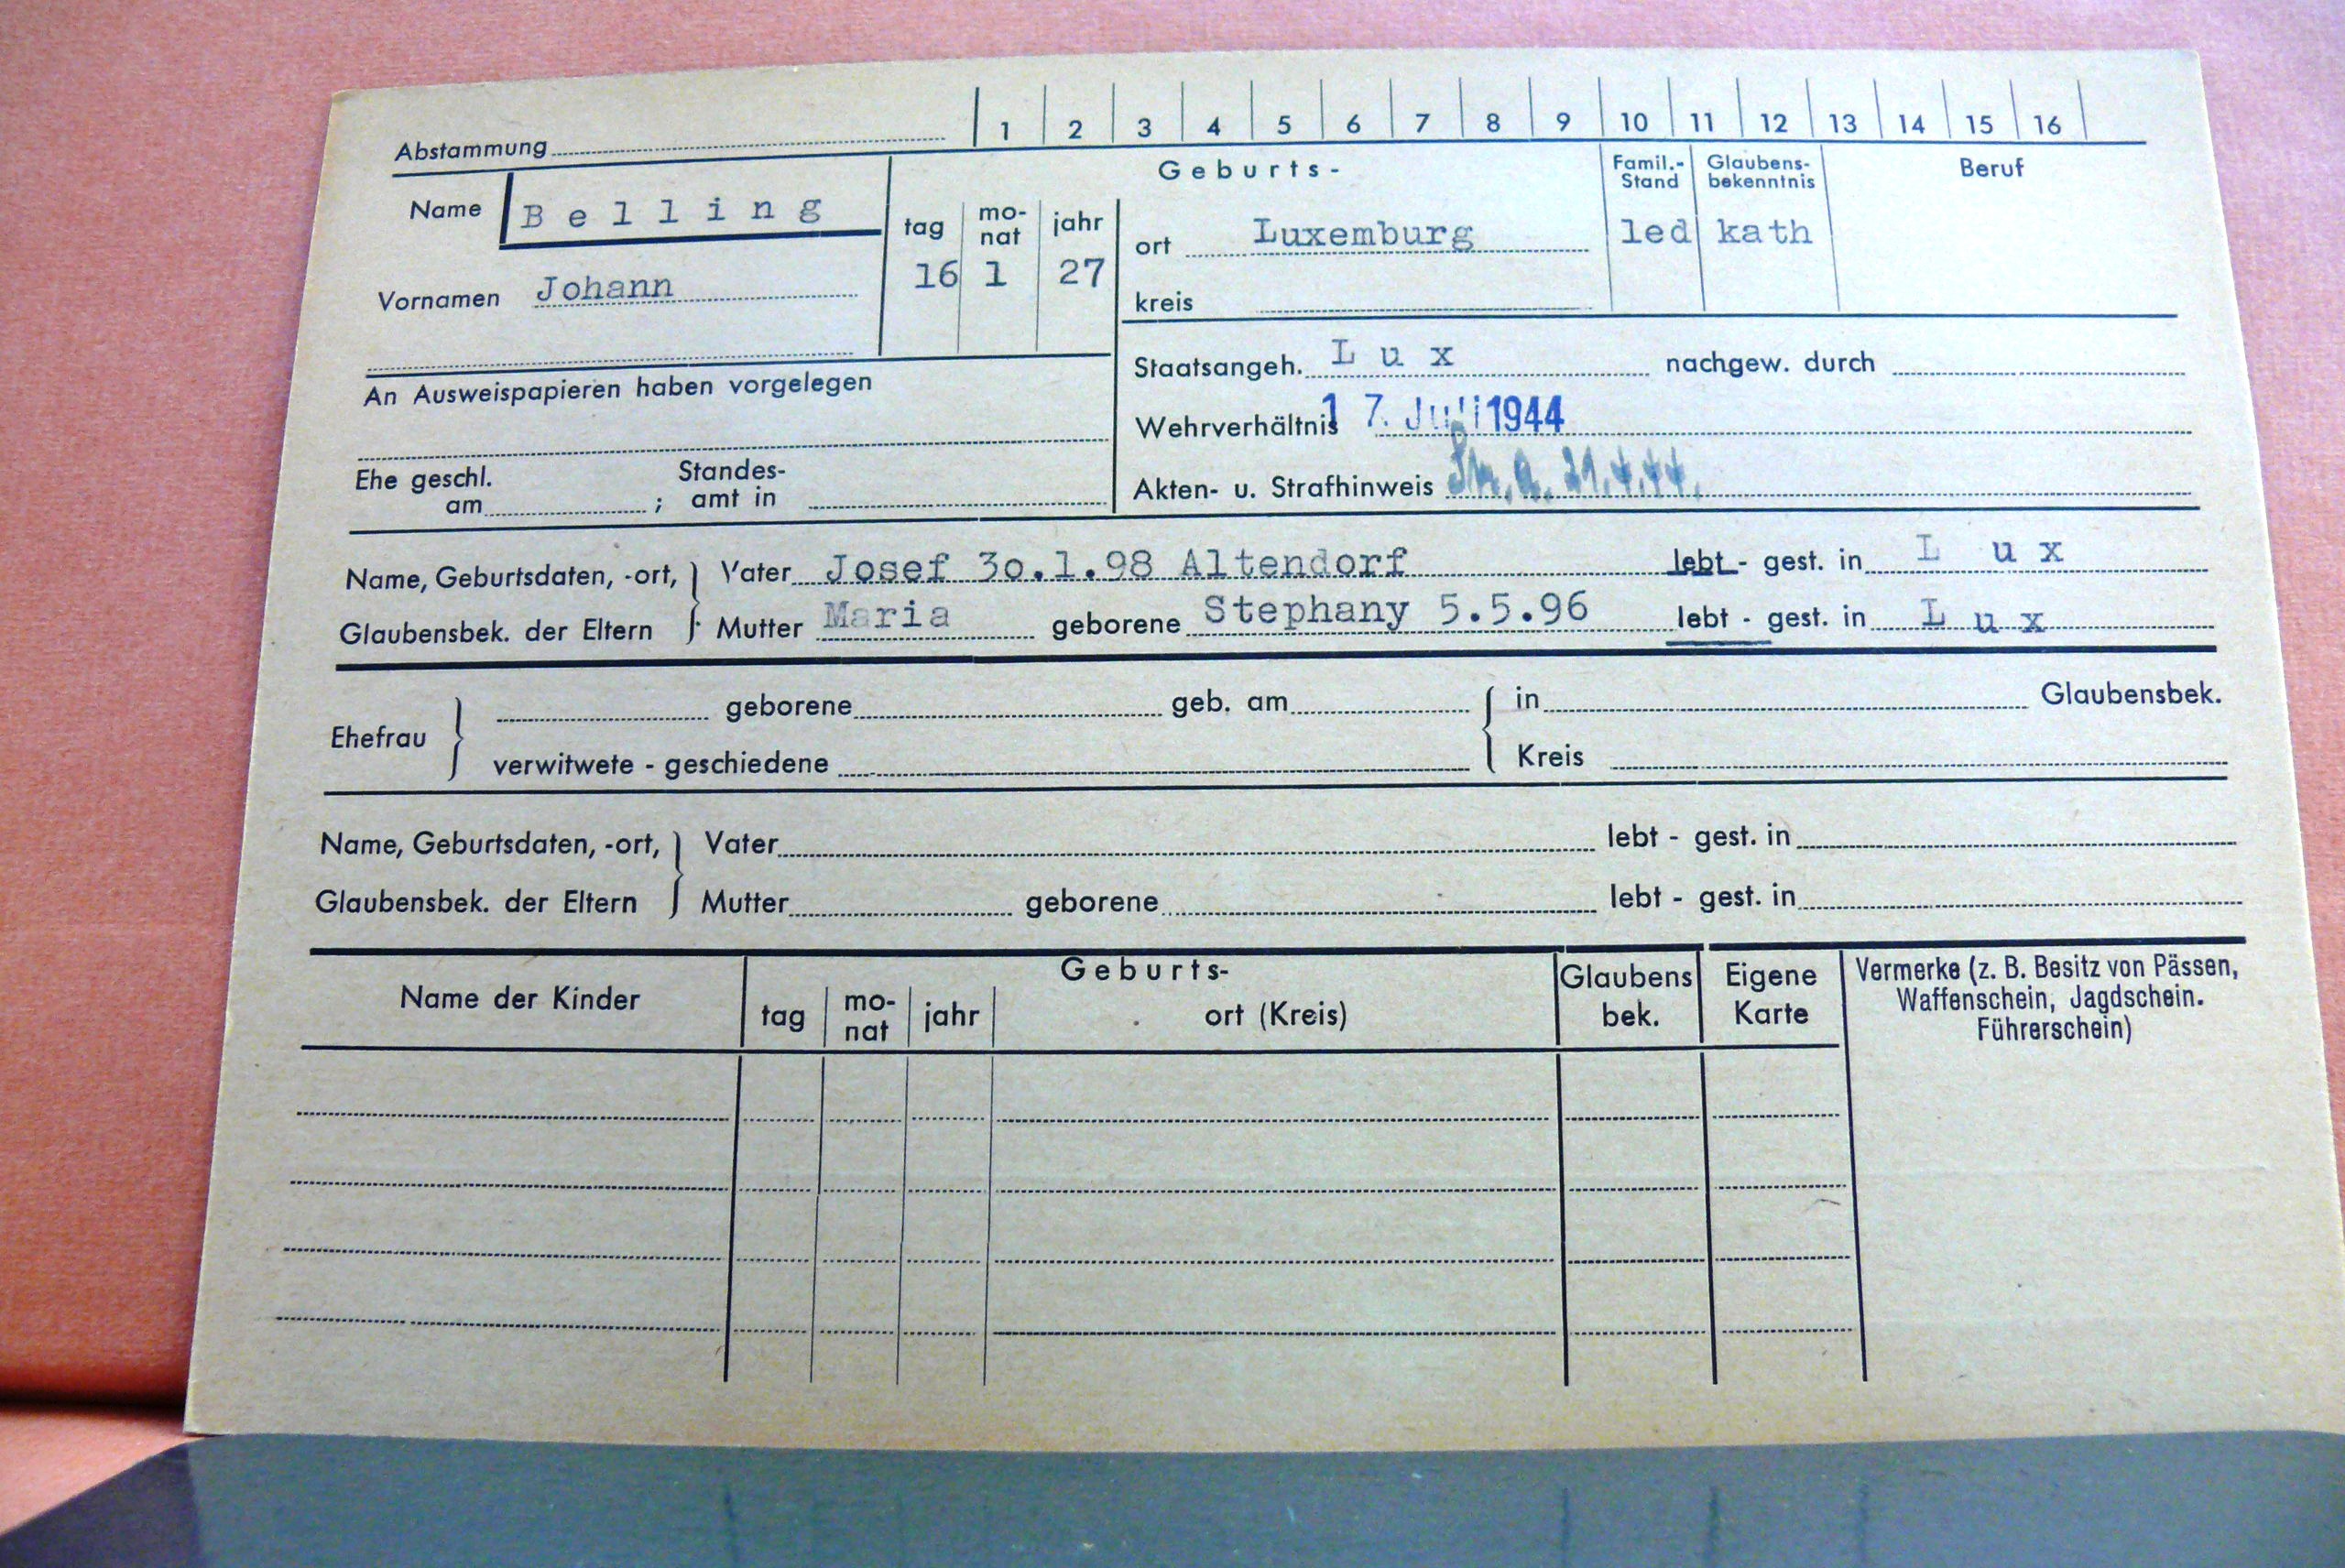 Abstammung 1 2 3 4 5 6 7 8 9 10 11 12 13 14 15 16
Name Belling
Vornamen Johann
Geburts-
tag mo-nat jahr
16 1 27
ort Luxemburg
kreis
Famil.-Stand
led
Glaubens-bekenntnis
kath
Beruf
An Ausweispapieren haben vorgelegen
Ehe geschl. am ; Standes-amt in
Staatsangeh. Lux nachgew. durch
Wehrverhältnis 17. Juli 1944
Akten- u. Strafhinweis 21.4.44.
Name, Geburtsdaten, -ort, Vater Josef 30.1.98 Altendorf lebt - gest. in Lux
Glaubensbek. der Eltern Mutter Maria geborene Stephany 5.5.96 lebt - gest. in Lux
Ehefrau
geborene geb. am in Glaubensbek.
verwitwete - geschiedene Kreis
Name, Geburtsdaten, -ort, Vater lebt - gest. in
Glaubensbek. der Eltern Mutter geborene lebt - gest. in
Name der Kinder
Geburts-
tag mo-nat jahr ort (Kreis)
Glaubens bek.
Eigene Karte
Vermerke (z. B. Besitz von Pässen,
Waffenschein, Jagdschein.
Führerschein)